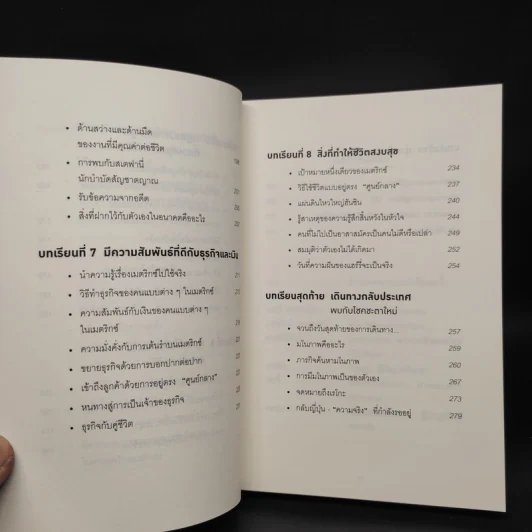 • ด้านสว่างและด้านมืด
ของงานที่มีคุณค่าต่อชีวิต
• การพบกับสเตฟานี่
นักบำบัดสัญชาตญาณ
• รับข้อความจากอดีต
• สิ่งที่ฝากไว้กับตัวเองในอนาคตคืออะไร
บทเรียนที่ 7 มีความสัมพันธ์ที่ดีกับธุรกิจและเงิน
• นำความรู้เรื่องเมตริกซ์ไปใช้จริง
• วิธีทำธุรกิจของคนแบบต่าง ๆ ในเมตริกซ์
• ความสัมพันธ์กับเงินของคนแบบต่าง ๆ
ในเมตริกซ์
• ความมั่งคั่งกับการเต้นรำบนเมตริกซ์
• ขยายธุรกิจด้วยการบอกปากต่อปาก
• เข้าถึงลูกค้าด้วยการอยู่ตรง "ศูนย์กลาง"
• หนทางสู่การเป็นเจ้าของธุรกิจ
• ธุรกิจกับคู่ชีวิต
บทเรียนที่ 8 สิ่งที่ทำให้ชีวิตสงบสุข
• เป้าหมายหนึ่งเดียวของเมตริกซ์ 234
• วิธีใช้ชีวิตแบบอยู่ตรง "ศูนย์กลาง" 237
• แผ่นดินไหวใหญ่ฮันชิน 240
• รู้สาเหตุของความรู้สึกสิ้นหวังในหัวใจ 244
• คนที่ไม่ไปเป็นอาสาสมัครเป็นคนไม่ดีหรือเปล่า 249
• สมมุติว่าตัวเองไม่ได้เกิดมา 252
• วันที่ความฝันของแฮร์รี่จะเป็นจริง 254
บทเรียนสุดท้าย เดินทางกลับประเทศ
พบกับโชคชะตาใหม่
• จวนถึงวันสุดท้ายของการเดินทาง... 257
• มโนภาพคืออะไร 259
• ภารกิจค้นหามโนภาพ 260
• การมีมโนภาพเป็นของตัวเอง 267
• จดหมายถึงเรโกะ 273
• กลับญี่ปุ่น - "ความจริง" ที่กำลังรออยู่ 279